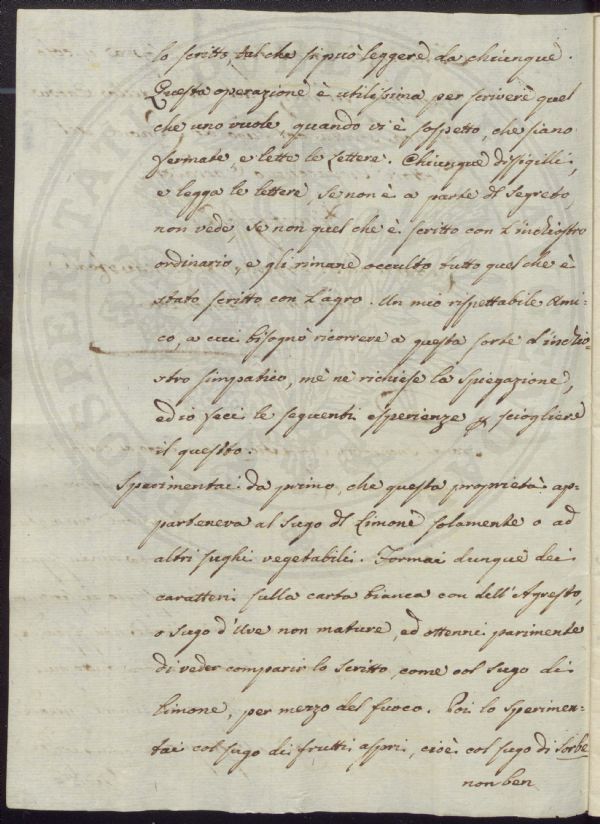 lo scritto, tal che si può leggere da chiunque.
Questa operazione è utilissima per scrivere quel
che uno vuole quando vi è sospetto, che siano
fermate e lette le Lettere. Chiunque dissigilli,
e legga le lettere se non è a parte dl segreto
non vede, se non quel che è scritto con l'inchiostro
ordinario, e gli rimane occulto tutto quel che è
stato scritto con l'agro. Un mio rispettabile Ami-
co, a cui bisognò ricorrere a questa sorte d'inchio-
stro simpatico, me ne richiese la spiegazione,
ed io feci le seguenti esperienze sciogliere
il quesito.
Sperimentai da primo, che questa proprietà ap-
parteneva al sugo dl Limone solamente o ad
altri sughi vegetabili. Formai dunque dei
caratteri sulla carta bianca con dell'Agresto,
o sugo d'Uve non mature, ed ottenni parimente
di veder comparir lo scritto, come col sugo di
limone, per mezzo del fuoco. Poi lo sperimen-
tai col sugo di frutti aspri, cioè col sugo di Sorbe
non ben